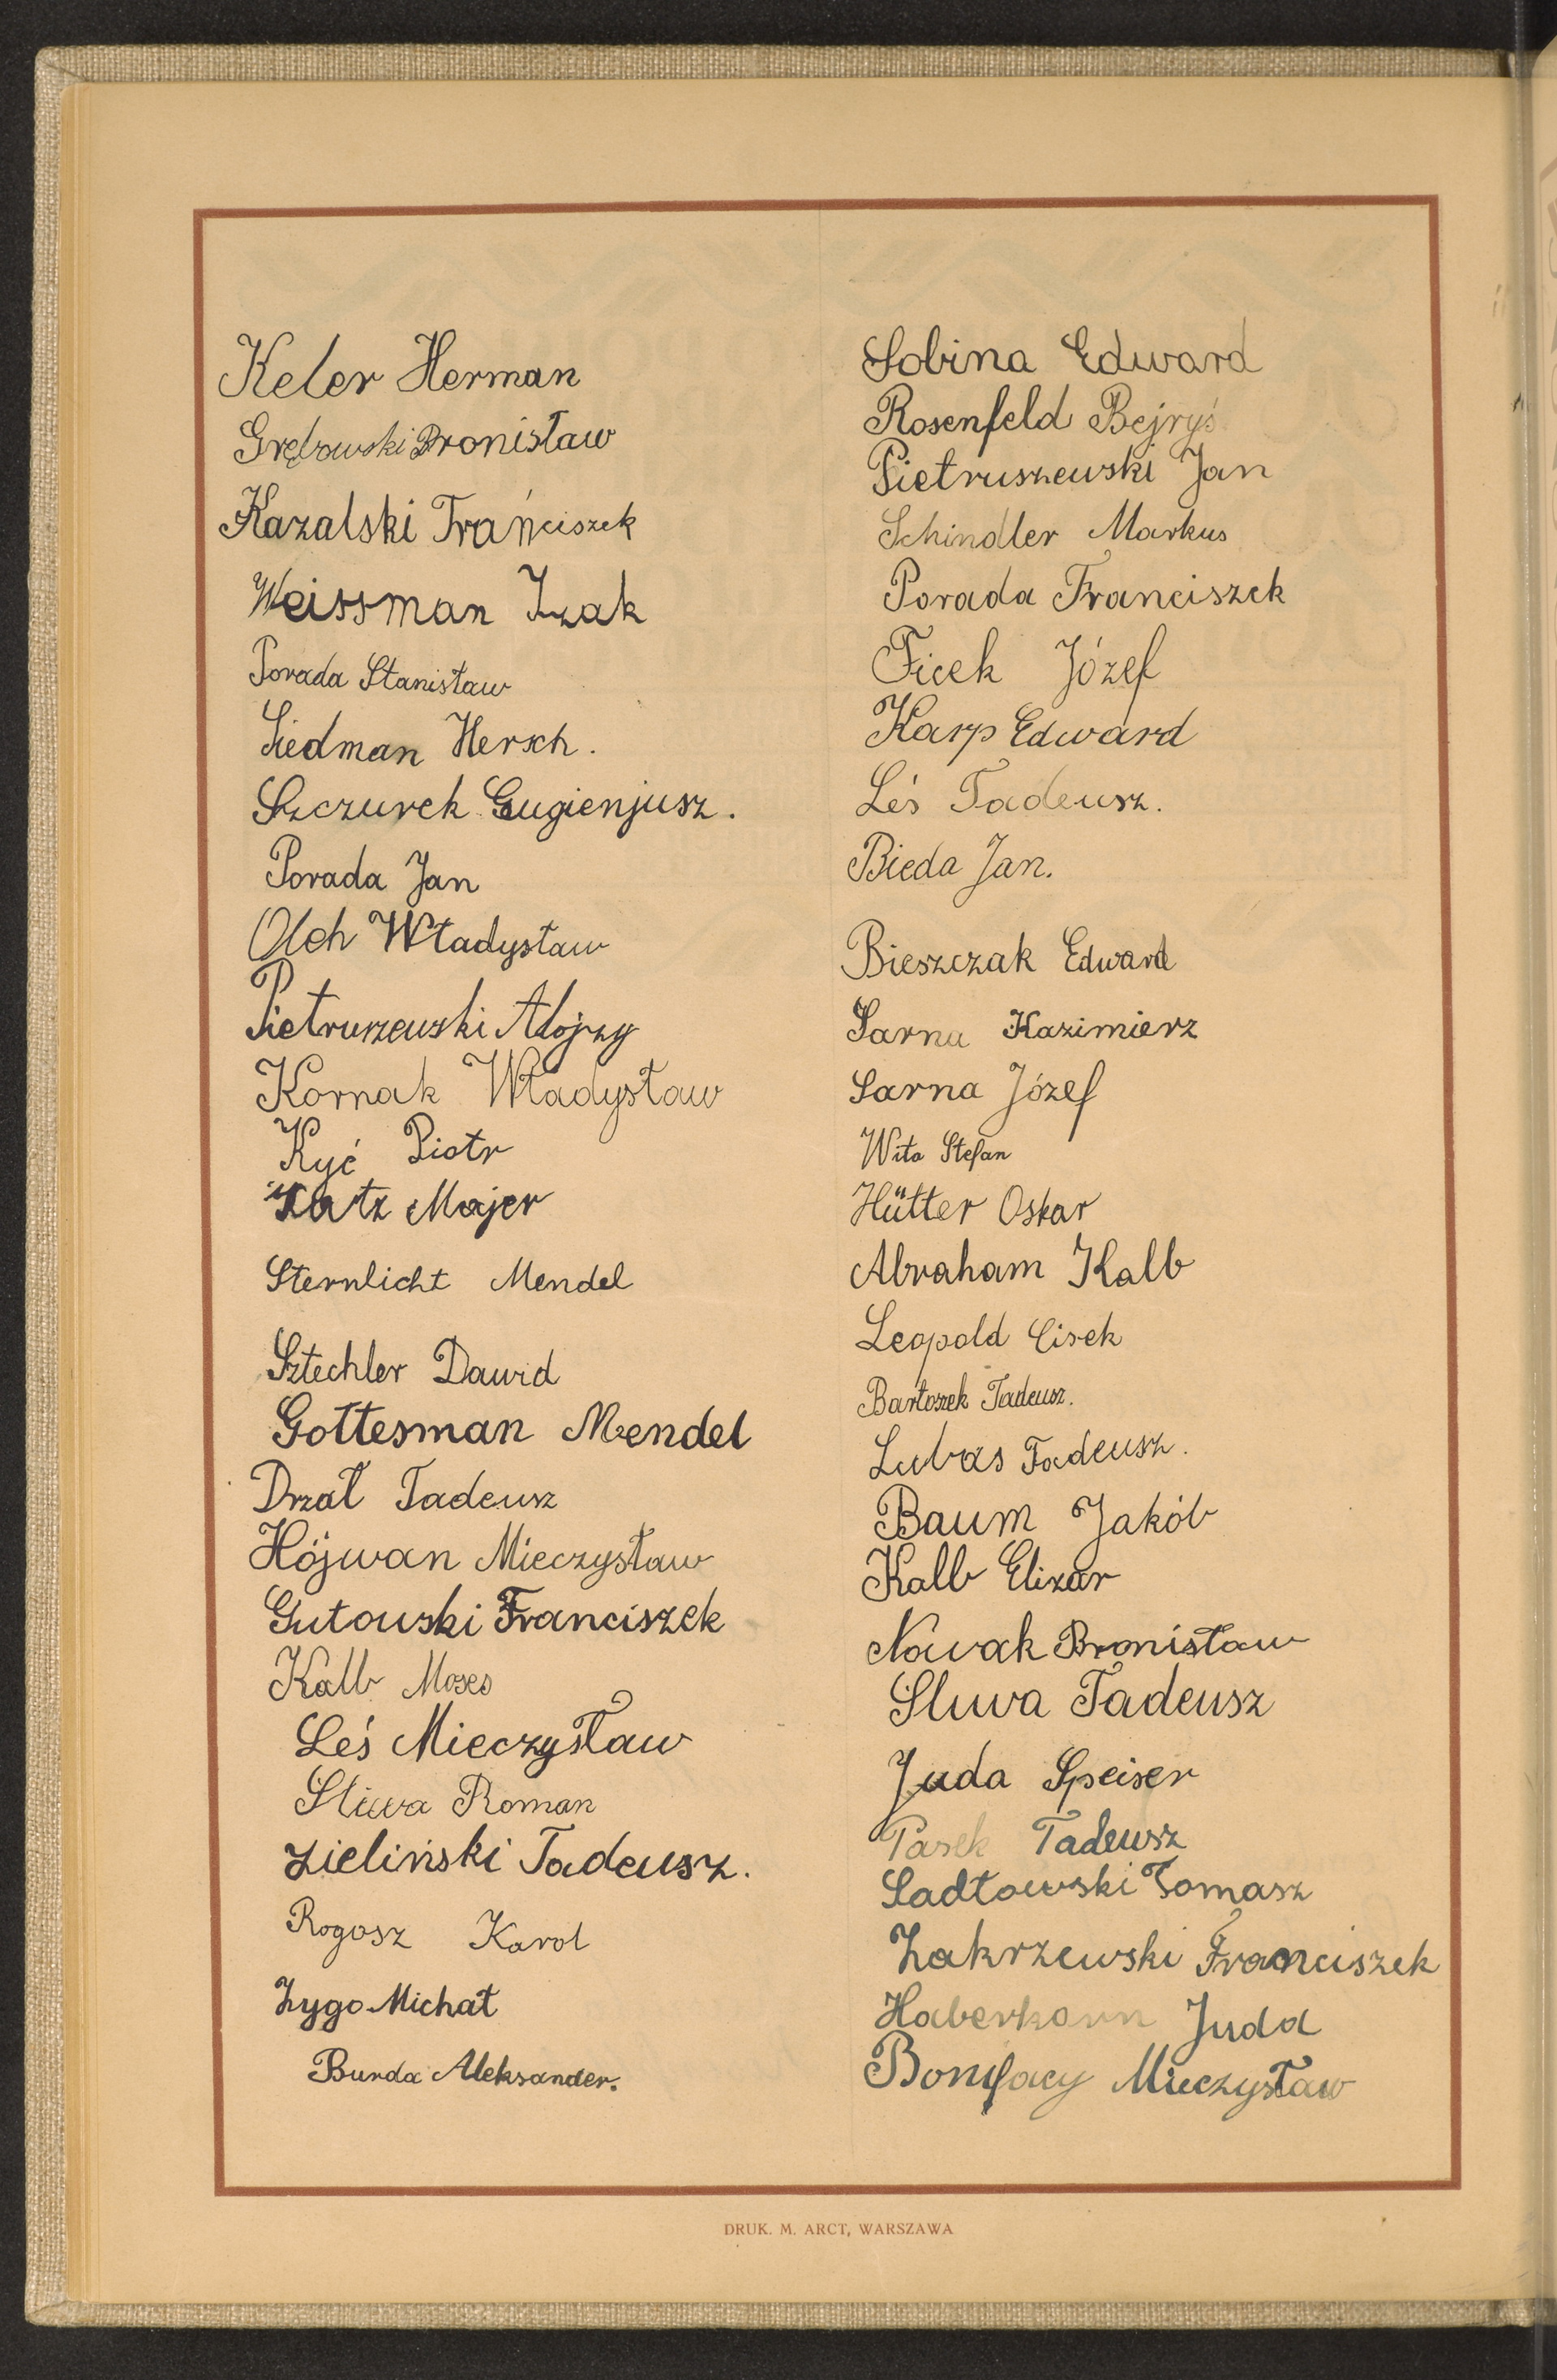 Keler Herman
Grębowski Bronisław
Kazalski Franciszek
Weissman Izak
Porada Stanisław
Liedman Hersch.
Szczurek Eugienjusz.
Porada Jan
Olch Władysław
Pietruszewski Alojzy
Kornak Władysław
Kyć Piotr
Katz Majer
Sternlicht Mendel
Sztechler Dawid
Gottesman Mendel
Drzał Tadeusz
Hójwan Mieczysław
Gutowski Franciszek
Kalb Moses
Leś Mieczysław
Sliwa Roman
Zieliński Tadeusz.
Rogosz Karol
Zygo Michał
Burda Aleksander.
Sobina Edward
Rosenfeld Bejryś
Pietruszewski Jan
Schindler Markus
Porada Franciszek
Ficek Józef
Karp Edward
Leś Tadeusz.
Bieda Jan.
Bieszczak Edward
Sarna Kazimierz
Sarna Józef
Wita Stefan
Hütter Oskar
Abraham Kalb
Leopold Cisek
Bartoszek Tadeusz.
Lubas Tadeusz.
Baum Jakób
Kalb Elizar
Nowak Bronisław
Sliwa Tadeusz
Juda Speiser
Pasek Tadeusz
Sadłowski Tomasz
Zakrzewski Franciszek
Haberkorn Juda
Bonifacy Mieczysław
DRUK. M. ARCT, WARSZAWA